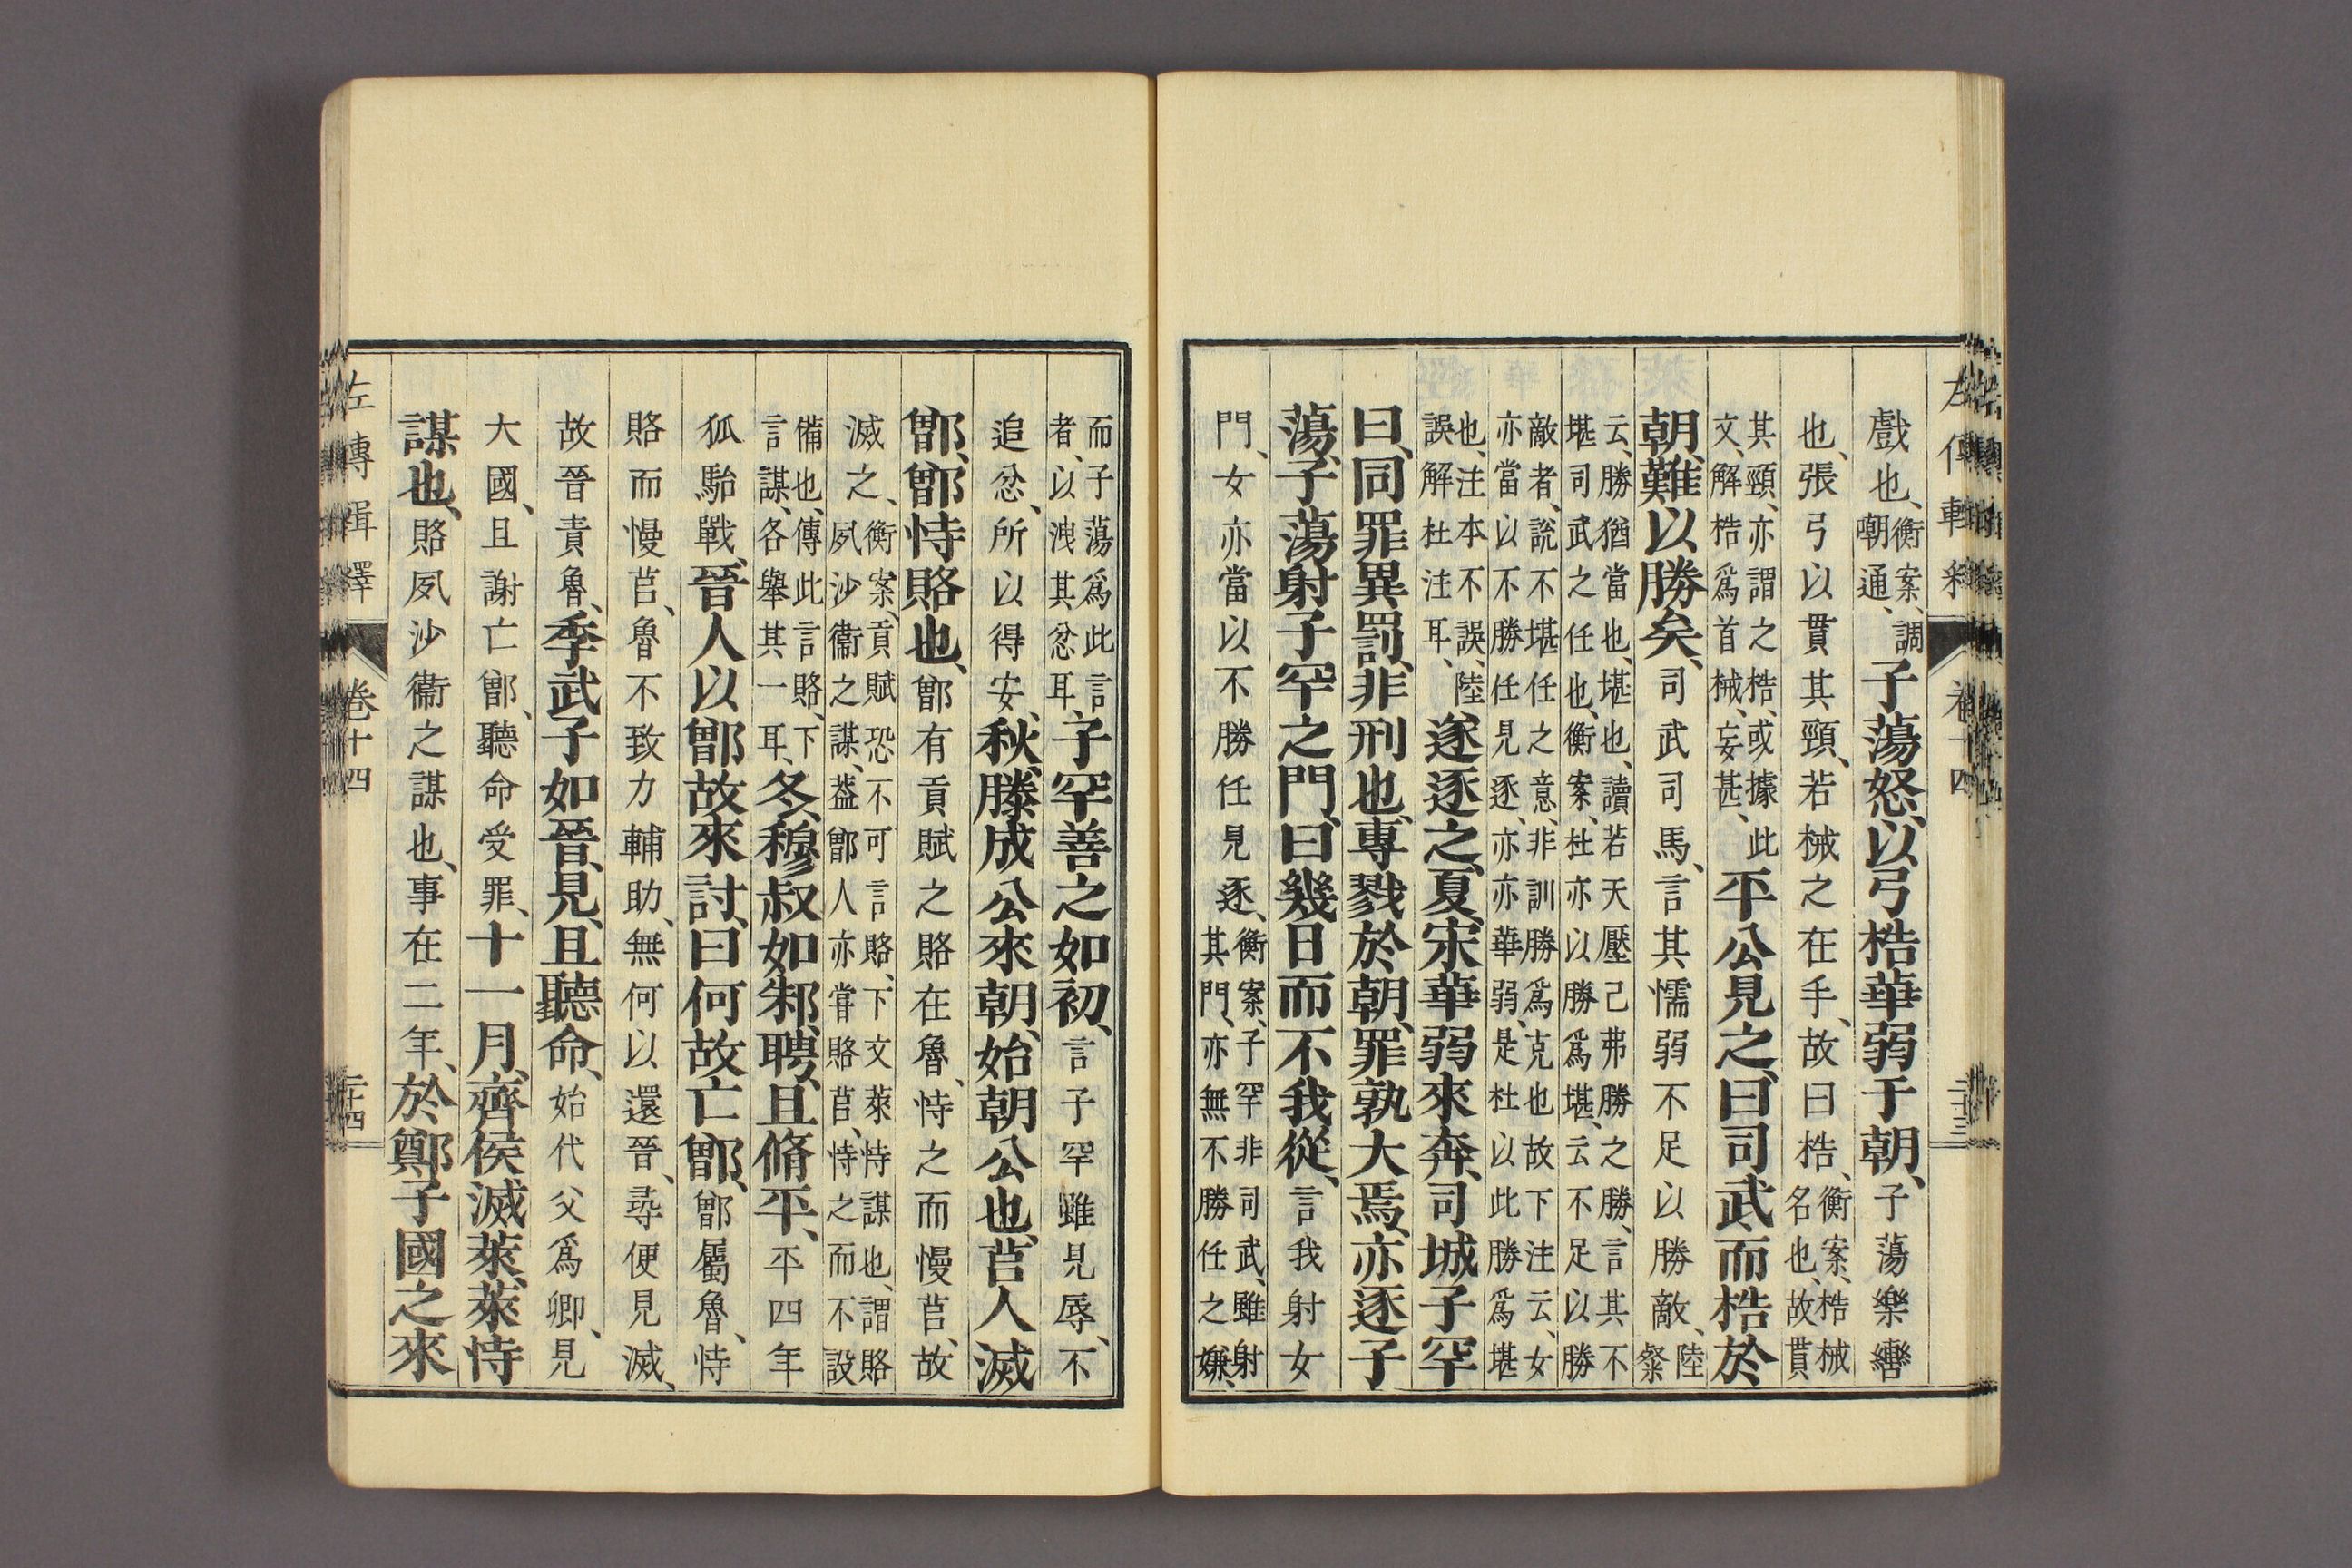 戲也、衡案、調嘲通、子蕩怒、以弓梏華弱于朝、子蕩樂轡
也、張弓以貫其頸、若械之在手、故曰梏、衡案、梏械名也、故貫
其頸、亦謂之梏、或據此文、解梏爲首械、妄甚、平公見之、曰、司武而梏於
朝、難以勝矣、司武司馬、言其懦弱不足以勝敵、陸粲
云、勝猶當也、堪也、讀若天壓己弗勝之勝、言其不堪司武之任也、衡案、杜亦以勝爲堪、云不足以勝
敵者、說不堪任之意、非訓勝爲克也、故下注云、女亦當以不勝任見逐、亦亦華弱、是杜以此勝爲堪
也、注本不誤、陸誤解杜注耳、遂逐之、夏、宋華弱來奔、司城子罕
曰、同罪異罰、非刑也、專戮於朝、罪孰大焉、亦逐子
蕩、子蕩射子罕之門、曰、幾日而不我從、言我射女
門、女亦當以不勝任見逐、衡案、子罕非司武、雖射其門、亦無不勝任之嫌、
而子蕩爲此言者、以洩其忿耳、子罕善之如初、言子罕雖見辱、不
追忿、所以得安、秋、滕成公來朝、始朝公也、莒人滅
鄫、鄫恃賂也、鄫有貢賦之賂在魯、恃之而慢莒、故
滅之、衡案、貢賦恐不可言賂、下文萊恃謀也、謂賂夙沙衞之謀、蓋鄫人亦嘗賂莒、恃之而不設
備也、傳此言賂、下言謀、各舉其一耳、冬、穆叔如邾聘、且脩平、平四年
狐駘戰、晉人以鄫故來討、曰、何故亡鄫、鄫屬魯、恃
賂而慢莒、魯不致力輔助、無何以還晉、尋便見滅、
故晉責魯、季武子如晉、見、且聽命、始代父爲卿、見
大國、且謝亡鄫、聽命受罪、十一月、齊侯滅萊、萊恃
謀也、賂夙沙衞之謀也、事在二年、於鄭子國之來
左傳輯釋 卷十四 二十四